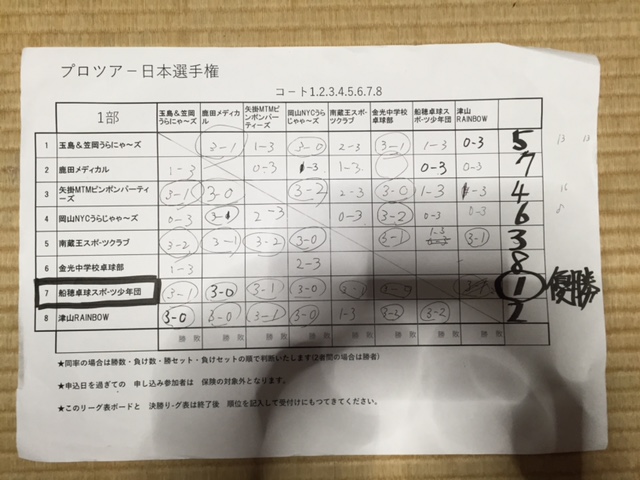 プロツアー日本選手権
コート1.2.3.4.5.6.7.8
1部 玉島&笠岡うらにゃ～ズ 鹿田メディカル 矢掛MTMピンポンパーティーズ 岡山NYCうらじゃゃ～ズ 南蔵王スポーツクラブ 金光中学校卓球部 船穂卓球スポーツ少年団 津山RAINBOW
1 玉島&笠岡うらにゃ～ズ 3-1 1-3 3-0 2-3 3-1 1-3 0-3 5 13 13
2 鹿田メディカル 1-3 0-3 1-3 1-3 0-3 0-3 7
3 矢掛MTMピンポンパーティーズ 3-1 3-0 3-2 2-3 3-0 1-3 1-3 4 16
4 岡山NYCうらじゃゃ～ズ 0-3 3-1 2-3 0-3 3-2 0-3 0-3 6 8
5 南蔵王スポーツクラブ 3-2 3-1 3-2 3-0 3-1 1-3 3-1 3
6 金光中学校卓球部 1-3 2-3 8
7 船穂卓球スポーツ少年団 3-1 3-0 3-1 3-0 1 優勝
8 津山RAINBOW 3-0 3-0 3-1 3-0 1-3 3-2 3-2 2
勝 敗 勝 敗 勝 敗 勝 敗 勝 敗 勝 敗 勝 敗 勝 敗
★同率の場合は勝数・負け数・勝セット・負けセットの順で判断いたします(2者間の場合は勝者)
★申込日を過ぎての 申し込み参加者は 保険の対象外となります。
★このリーグ表ボードと 決勝リーグ表は終了後 順位を記入して受付けにもつてきてください。